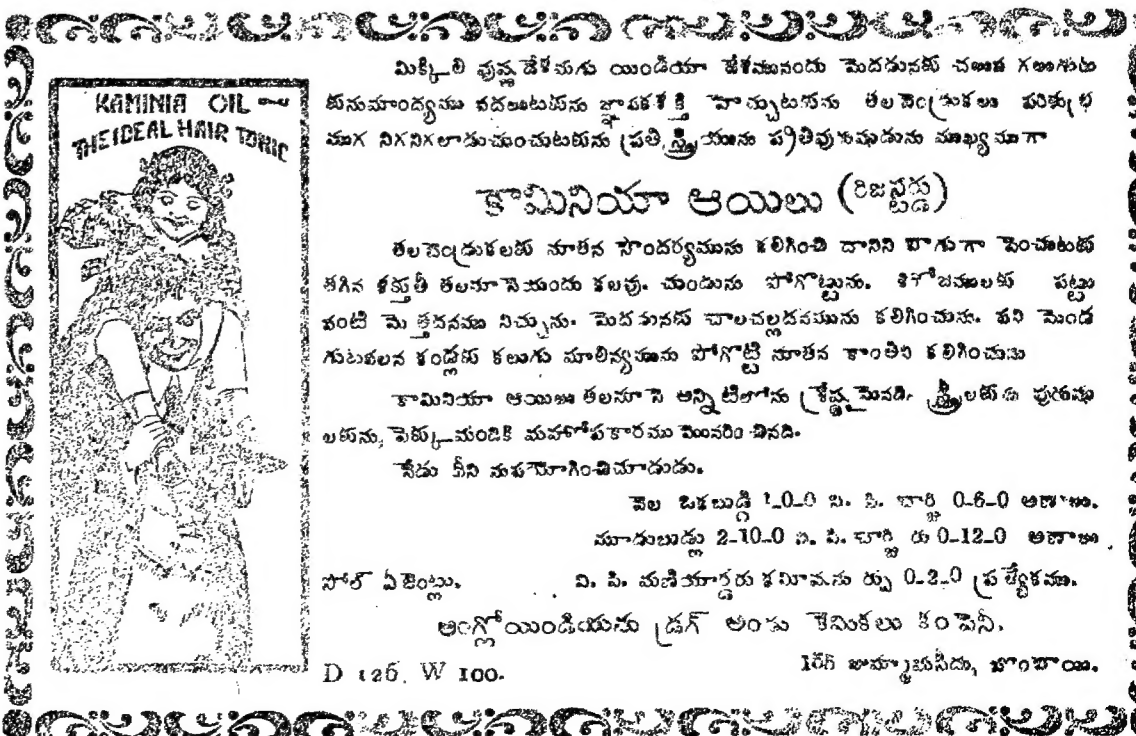 KAMINIA OIL
THE IDEAL HAIR TONIC
మిక్కిలి వుష్ణదేశమగు యిండియా దేశమునందు మెదడునకు చలువ గలుగుట
కును మాంద్యము వదలుటకును జ్ఞాపకశక్తి హెచ్చుటకును తలవెంద్రుకలు పరిశుభ్ర
ముగ నిగనిగలాడుచుంచుటకును ప్రతి స్త్రీయును ప్రతివురుషుడును ముఖ్యముగా
కామినియా ఆయిలు (రిజస్టర్డు)
తలవెంద్రుకలకు నూతన సౌందర్యమును కలిగించి దానిని బాగుగా పెంచుటకు
తగిన శక్తుతీ తలనూనెయందు కలవు. చుండును పోగొట్టును. శిరోజములకు పట్టు
వంటి మెత్తదనము నిచ్చును. మెదడునకు చాలచల్లదనమును కలిగించును. పని మెండ
గుటవలన కండ్లకు కలుగు మాలిన్యమును పోగొట్టి నూతన కాంతిని కలిగించును
కామినియా ఆయిలు తలనూనె అన్నిటిలోను శ్రేష్ఠమైనది. స్త్రీలకును పురుషు
లకును, పెక్కుమందికి మహోపకారము యొనరించినది.
నేడు దీని నుపయోగించిచూడుడు.
వెల ఒకబుడ్డి 1-0-0 వి. పి. చార్జి 0-6-0 అణాలు.
మూడుబుడ్లు 2-10-0 వి. పి. చార్జి రు 0-12-0 అణాలు
సోల్ ఏజెంట్లు. వి. పి. మణియార్డరు కమీషను ర్పు 0-2-0 ప్రత్యేకము.
ఆంగ్లోయిండియను డ్రగ్ అండు కెమికలు కంపెనీ.
155 జుమ్మామసీదు, బొంబాయి.
D 126. W 100.